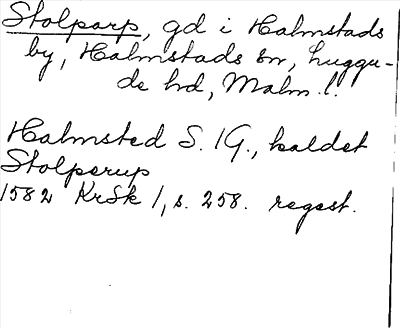 Stolparp, gd i Halmstads
by, Halmstads sn, Luggu-
de hd, Malm. l.
Halmsted S. 1G., kaldet
Stolperup
1582 KrSk 1, s. 258. regest.